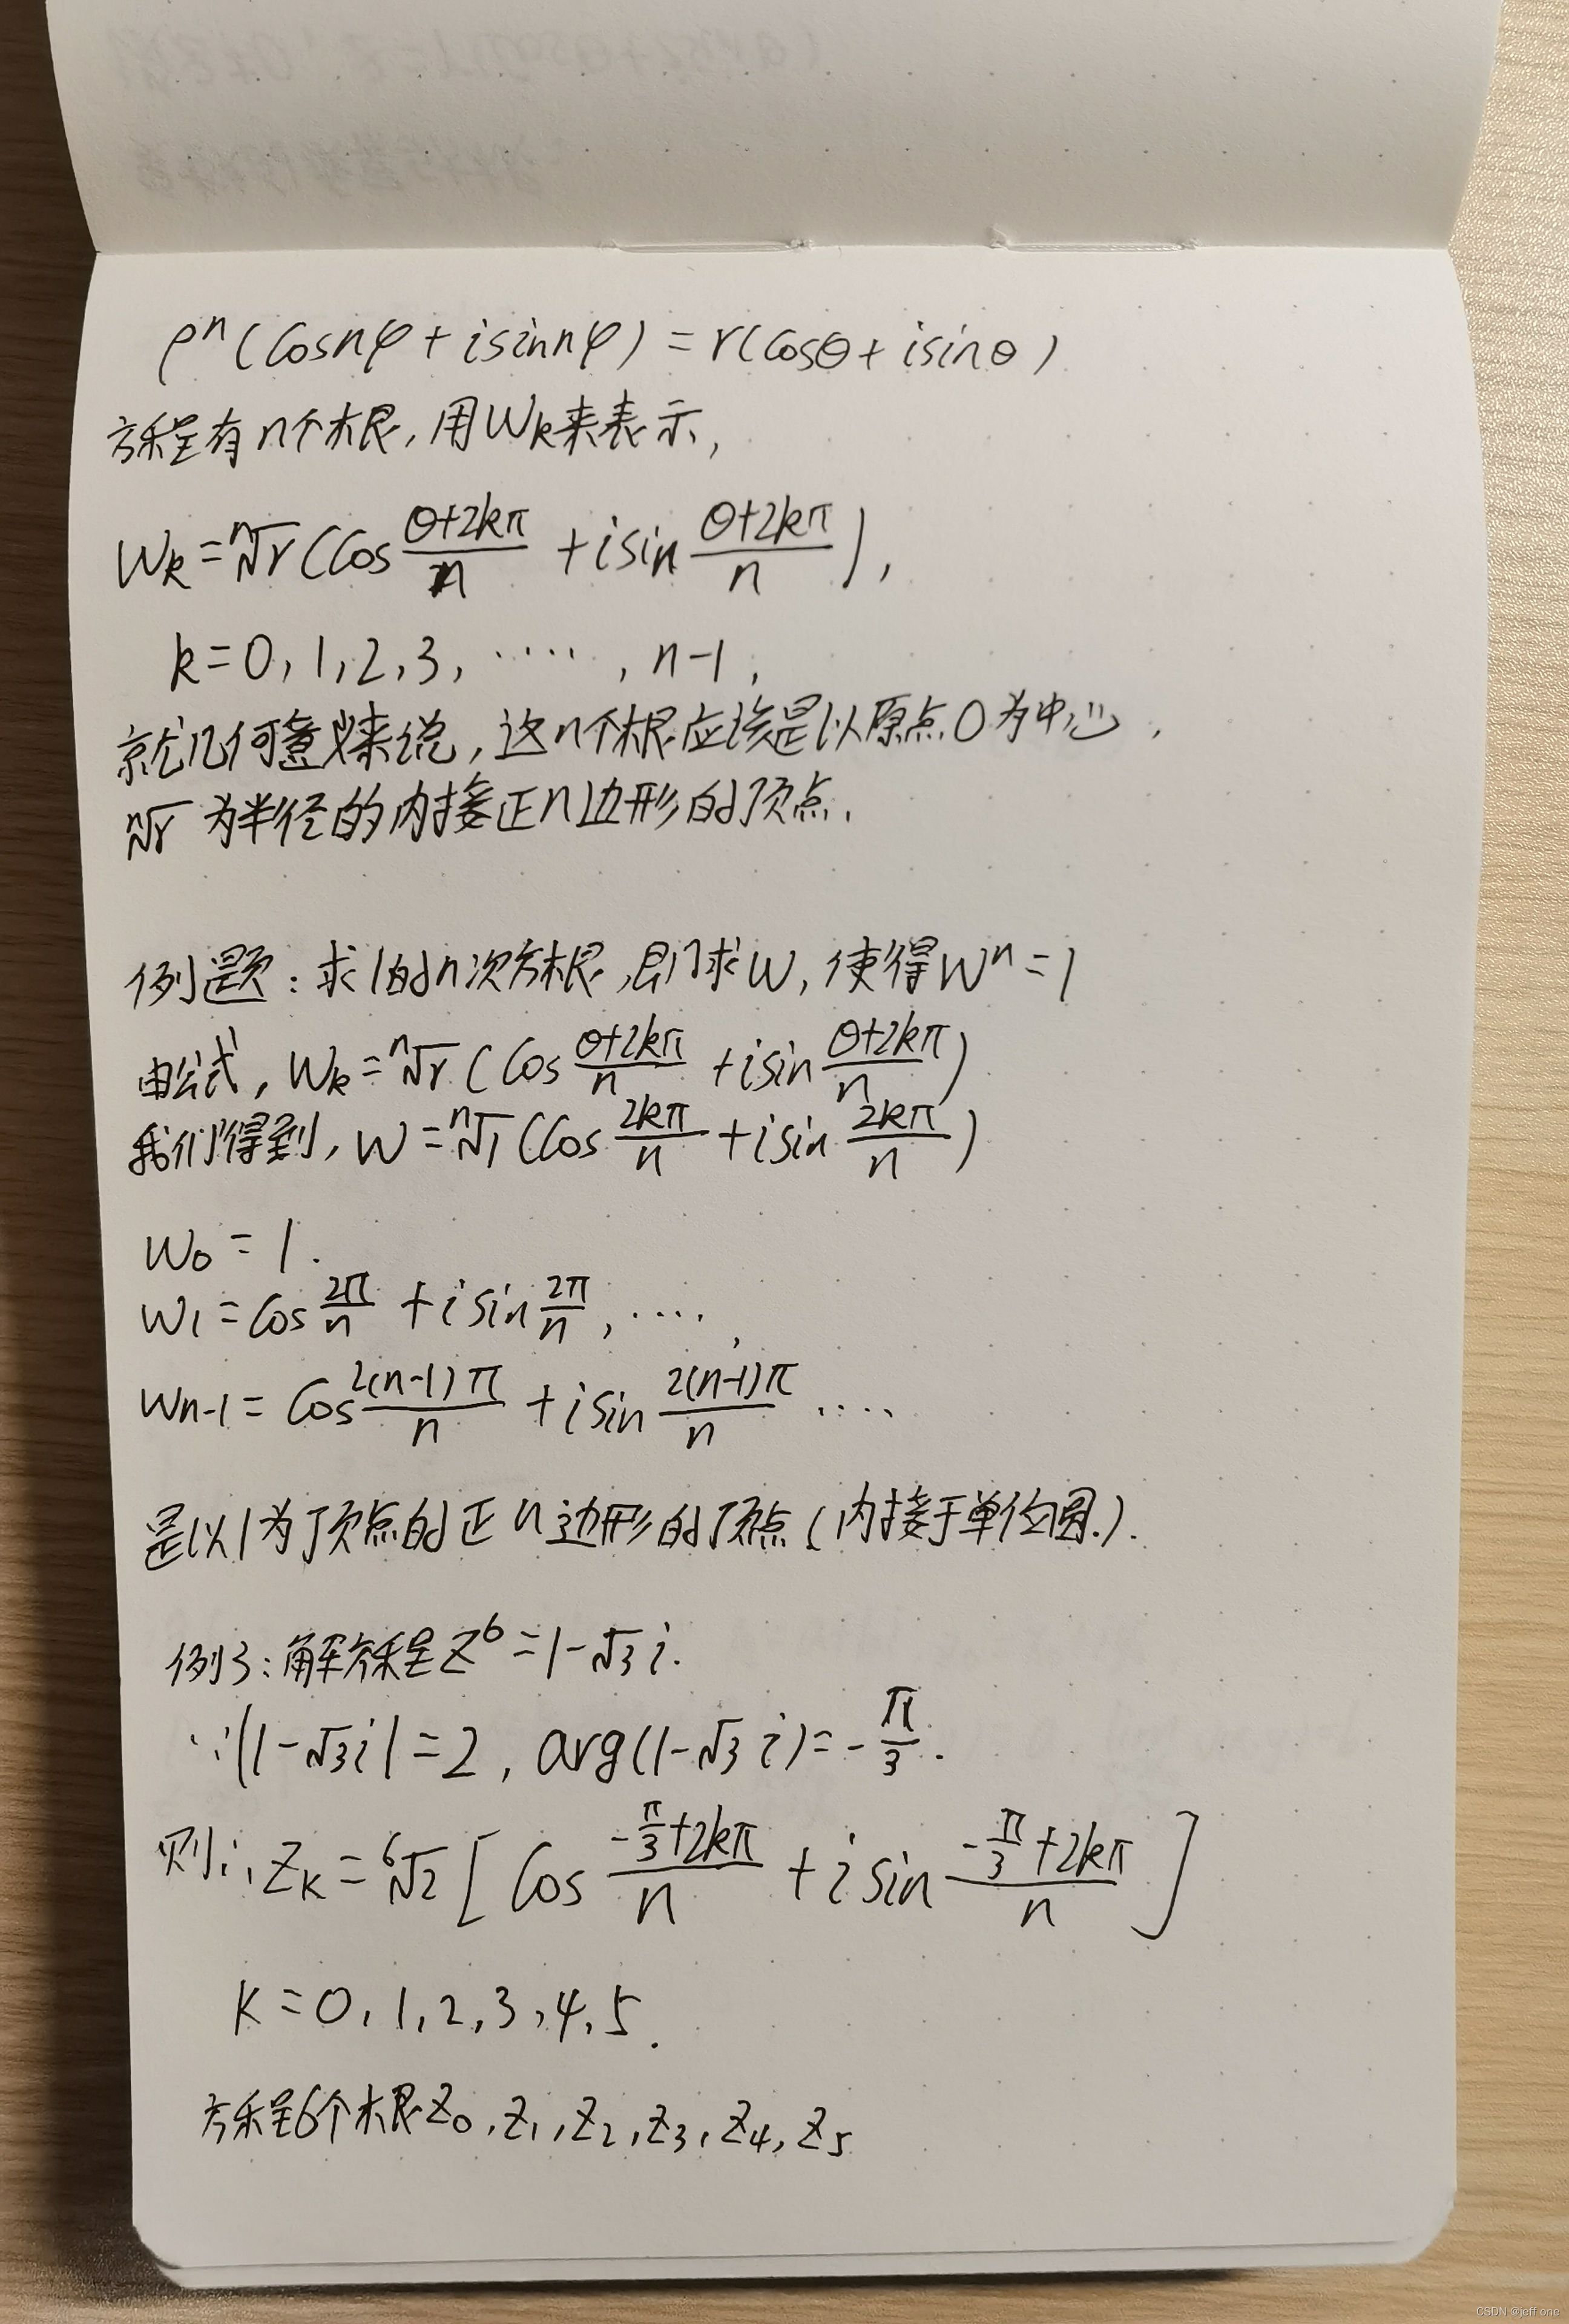 ρⁿ(cosnφ + isinnφ) = r(cosθ + isinθ)
方程有n个根,用Wk来表示,
Wk = ⁿ√r (cos (θ+2kπ)/n + isin (θ+2kπ)/n ),
k=0,1,2,3,·····,n-1,
就几何意义来说,这n个根应该是以原点O为中心,
ⁿ√r 为半径的内接正n边形的顶点.
例题:求1的n次方根,即求W,使得Wⁿ=1
由公式,Wk = ⁿ√r (cos (θ+2kπ)/n + isin (θ+2kπ)/n )
我们得到,W = ⁿ√1 (cos 2kπ/n + isin 2kπ/n )
W₀ = 1.
W₁ = cos 2π/n + isin 2π/n , ····,
Wn-1 = cos 2(n-1)π/n + isin 2(n-1)π/n ····
是以1为顶点的正n边形的顶点(内接于单位圆.).
例3:解方程Z⁶=1-√3 i.
∵|1-√3 i|=2, arg(1-√3 i)=-π/3.
则:, Zk = ⁶√2 [ cos (-π/3+2kπ)/n + isin (-π/3+2kπ)/n ]
K=0,1,2,3,4,5.
方程6个根Z₀,Z₁,Z₂,Z₃,Z₄,Z₅
CSDN @jeff one